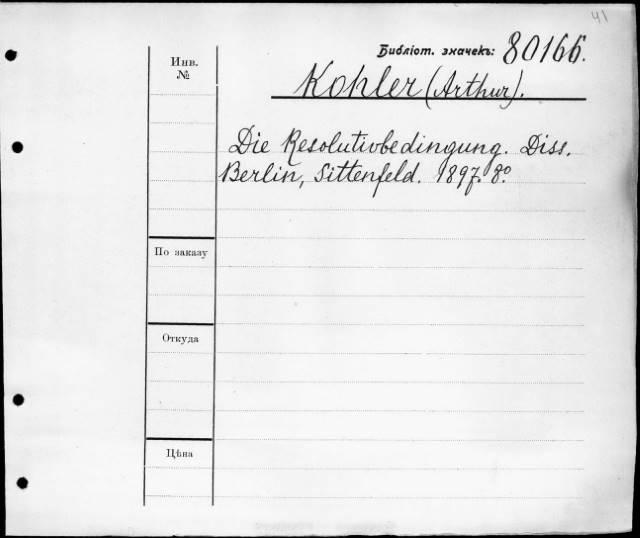 41
Библіот. значекъ: 80166.
Инв.
№
Kohler (Arthur).
Die Resolutivbedingung. Diss.
Berlin, Sittenfeld. 1897. 8º
По заказу
Откуда
Цѣна